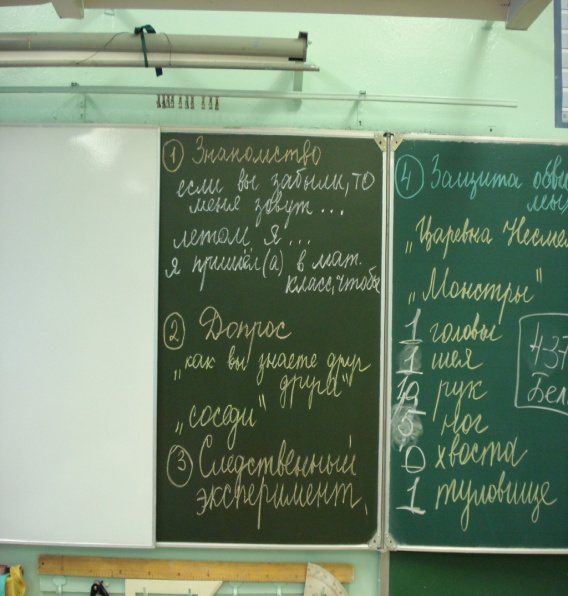 ① Знакомство
если вы забыли, то
меня зовут...
летом я...
я пришёл(а) в мат.
класс, чтобы
② Допрос
„как вы знаете друг
друга"
„соседи"
③ Следственный
эксперимент
④ Защита
„Царевна Несме
„Монстры"
1 головы
1 шея
рук
5 ног
0 хвоста
1 туловище
4-37
Бел